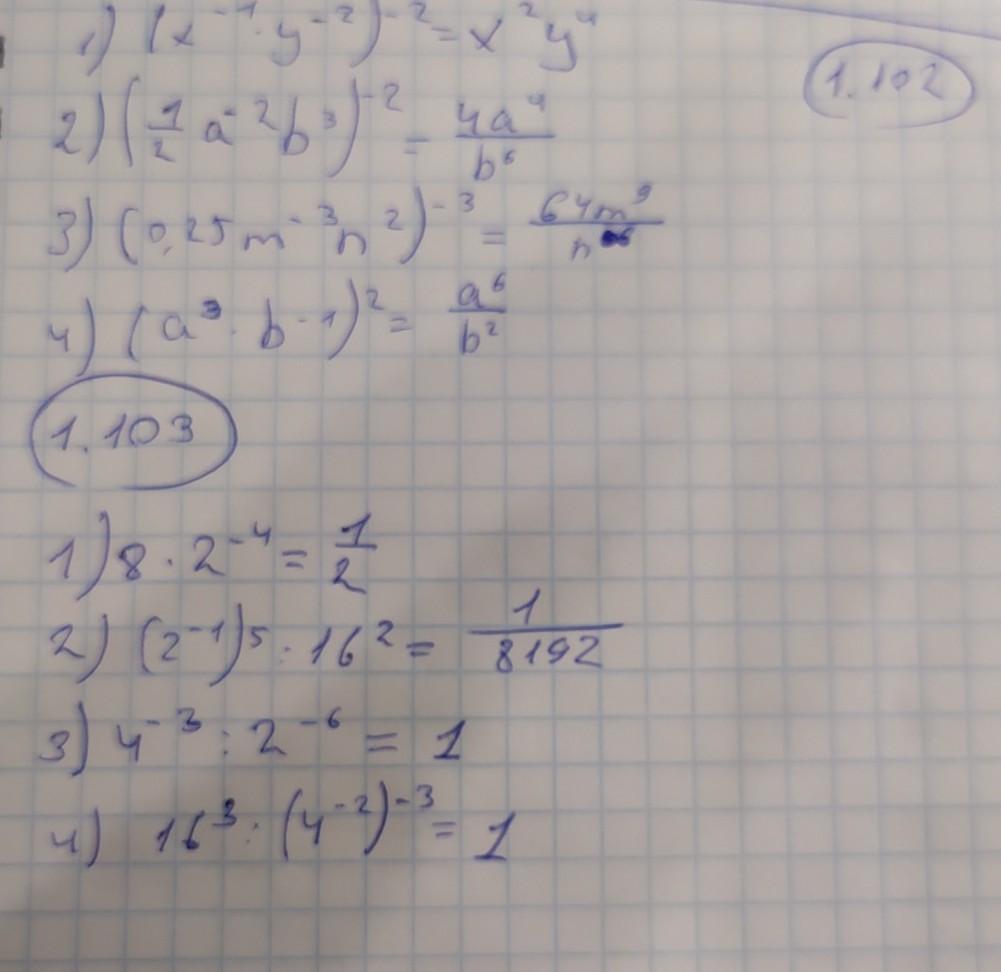 1) (x⁻¹ · y⁻²)⁻² = x²y⁴
1.102
2) (1/2 a⁻²b³)⁻² = 4a⁴/b⁶
3) (0,25m⁻³n²)⁻³ = 64m⁹/n⁶
4) (a³ · b-1)² = a⁶/b²
1.103
1) 8 · 2⁻⁴ = 1/2
2) (2⁻¹)⁵ : 16² = 1/8192
3) 4⁻³ : 2⁻⁶ = 1
4) 16³ : (4⁻²)⁻³ = 1